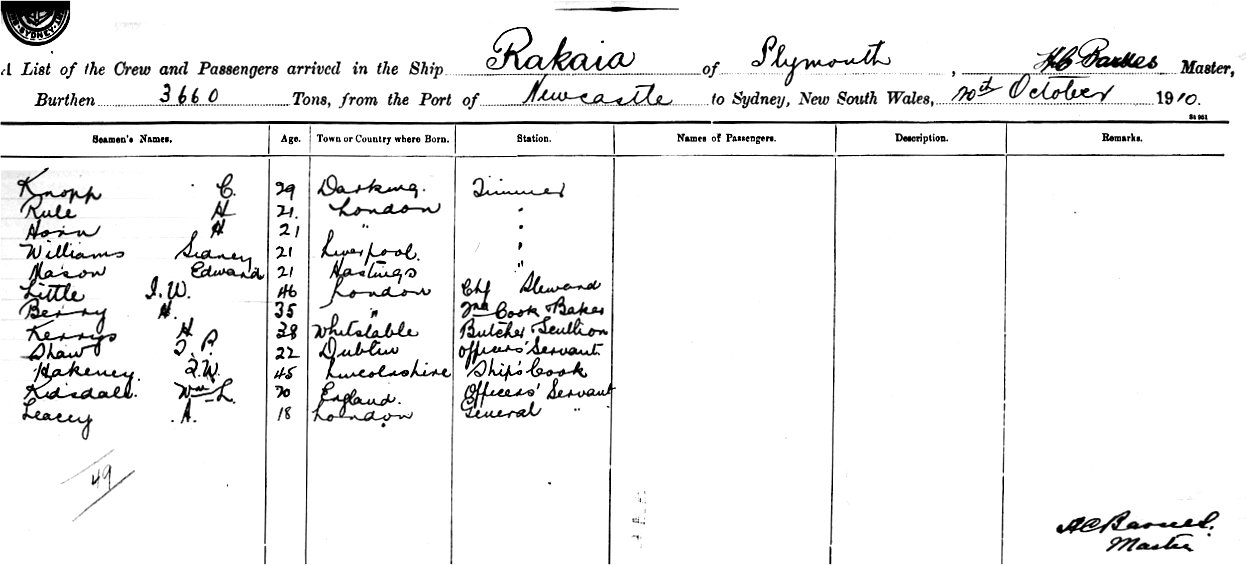 SYDNEY
A List of the Crew and Passengers arrived in the Ship Rakaia of Plymouth, HC Barnes Master,
Burthen 3660 Tons, from the Port of Newcastle to Sydney, New South Wales, 20th October 1910.
Seamen's Names. Age. Town or Country where Born. Station. Names of Passengers. Description. Remarks.
Knopp C. 29 Darking. Trimmer
Rule H 21. London "
Horn H 21 " "
Williams Sidney 21 Liverpool. "
Mason Edward 21 Hastings "
Little J. W. 46 London Chf Steward
Berry H. 35 " 2nd Cook & Baker
Kerrys H 38 Whitstable Butcher Scullion
Shaw T. P. 22 Dublin Officers' Servant
Hakeney. J. W. 45 Lincolnshire Ship's Cook
Kidsdall. Wm L. 20 England. Officers' Servant
Leacey A. 18 London General "
49
HC Barnes.
Master